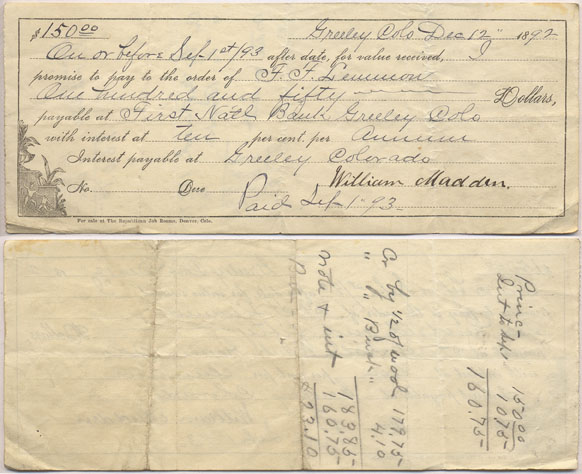 $150.00 Greeley Colo Dec 12" 1892
On or before Sep 1st/93 after date, for value received,
promise to pay to the order of F. F. Lemmon
One hundred and fifty Dollars,
payable at First Natl Bank Greeley Colo
with interest at ten per cent. per Annum
Interest payable at Greeley Colorado
No. Due William Madden.
Paid Sep 1-93
For sale at The Republican Job Rooms, Denver, Colo.
Princ- 150.00
Int to Sep 10.75
160.75
Cr by 1/2 of wood 179.75
" " " 4.10
183.85
note & int 160.75
23.10